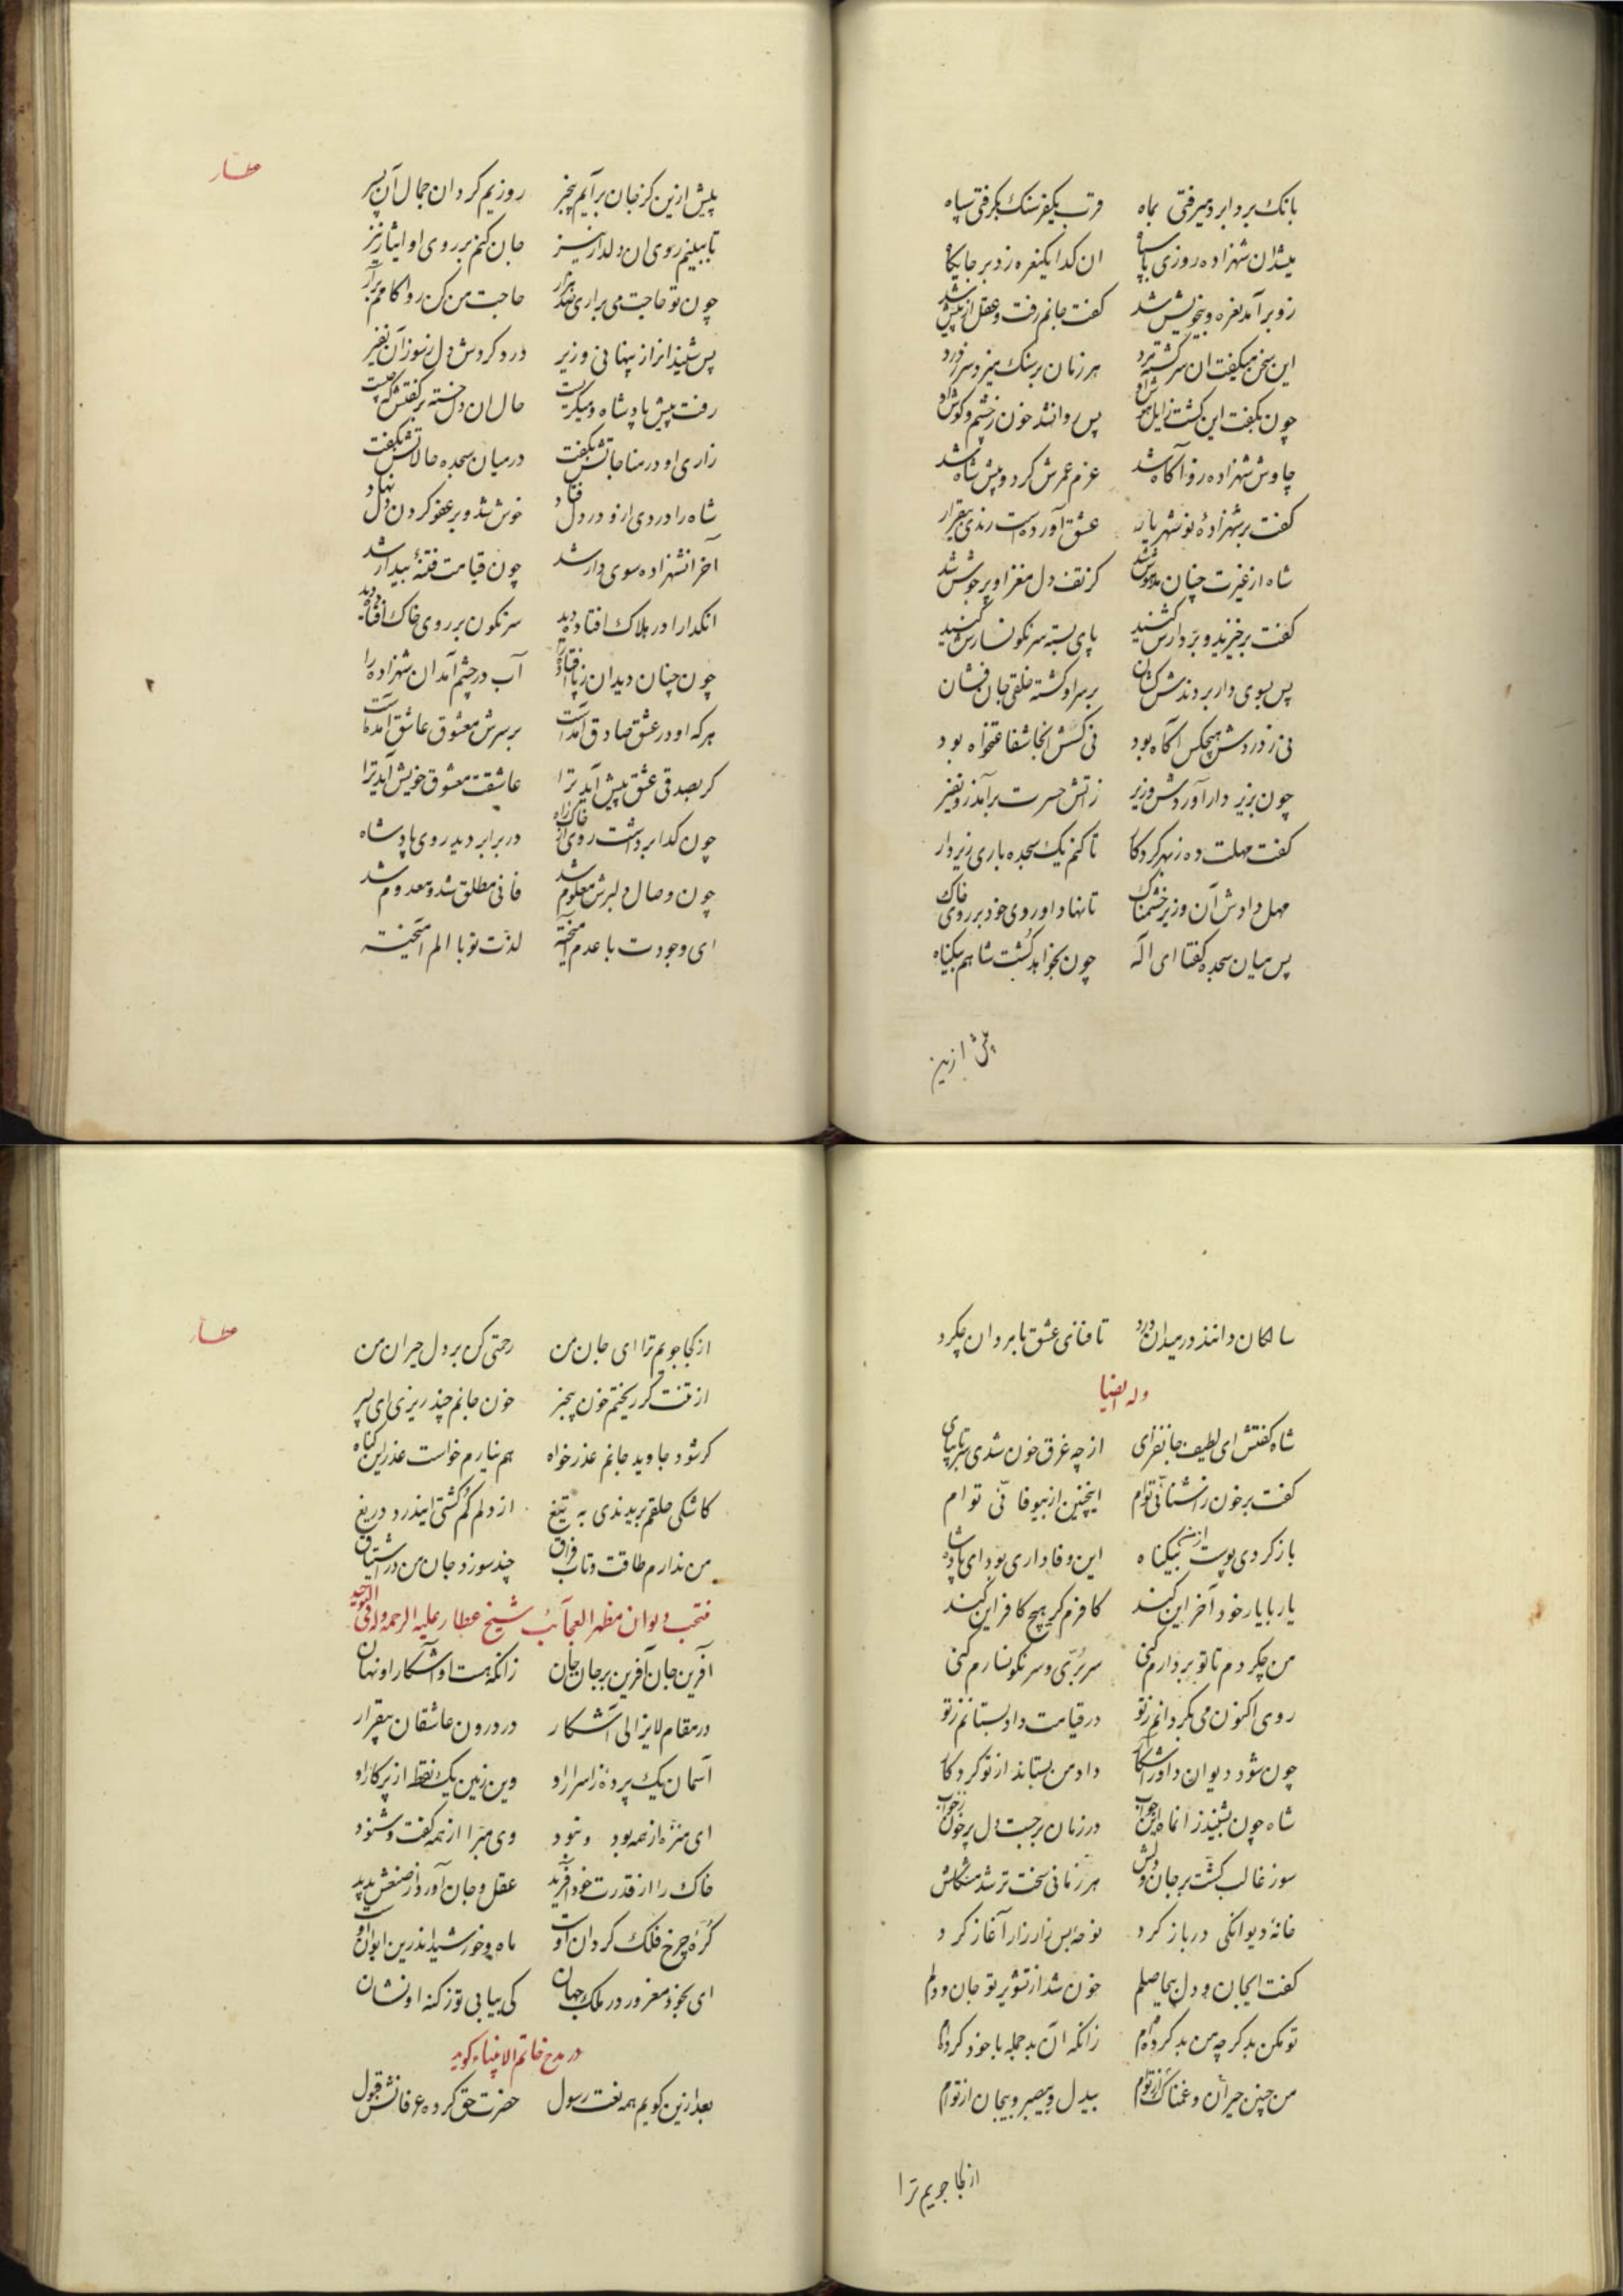 بانک بردابرد میرفتی بماه قرب یکفرسنک بکرفتی سپاه
میشدان شهزاده روزی با سپاه ان کدا یکنعره زد بر جایکاه
زو برآمد نعره و بیخویش شد کفت جانم رفت و عقل از پیش شد
این سخن میکفت ان سرکشته مرد هر زمان بر سنک میزد سر ز درد
چون بکفت این کشت زایل هوش او پس روانشد خون ز چشم و کوش او
چاوش شهزاده زو آکاه شد عزم غمزش کرد و پیش شاه شد
کفت بر شهزادهٔ تو شهریار عشق آورده است رندی بیقرار
شاه از غیرت چنان مدهوش شد کز تف دل مغز او پر جوش شد
کفت برخیزید و بر دارش کنید پای بسته سرنکونسارش کنید
پس بسوی دار بردندش کشان بر سر او کشته خلقی جان فشان
نی ز دردش هیچکس آکاه بود نی کسش انجا شفاعتخواه بود
چون بزیر دار آوردش وزیر ز آتش حسرت برآمد زو نفیر
کفت مهلت ده ز بهر کردکار تا کنم یک سجده باری زیر دار
مهل دادش آن وزیر خشمناک تا نهاد او روی خود بر روی خاک
پس میان سجده کفتا ای اله چون بخواهد کشت شاهم بیکناه
پیش ازین
عطار
پیش ازین کز جان برآیم بیخبر روزیم کردان جمال آن پسر
تا ببینم روی ان دلدار نیز جان کنم بر روی او ایثار نیز
چون تو حاجت می براری صد هزار حاجت من کن روا کامم برآر
پس شنید انراز پنهانی وزیر درد کردش دل ز سوز آن نفیر
رفت پیش پادشاه و میکریست حال ان دل خسته بر کفتش که چیست
زاری او در مناجاتش بکفت در میان سجده حالاتش بکفت
شاه را دردی ازو در دل فتاد خوش شد و بر عفو کردن دل نهاد
آخر انشهزاده سوی دار شد چون قیامت فتنهٔ بیدار شد
انکدا را در هلاک افتاده دید سرنکون بر روی خاک افتاده دید
چون چنان دید ان ز پا افتاده را آب در چشم آمد ان شهزاده را
هرکه او در عشق صادق آمده است بر سرش معشوق عاشق آمده است
کر بصدقی عشق پیش آید ترا عاشقت معشوق خویش آید ترا
چون کدا برداشت روی از خاک راه در برابر دید روی پادشاه
چون وصال دلبرش معلوم شد فانی مطلق شد و معدوم شد
ای وجودت با عدم آمیخته لذت تو با الم آمیخته
سالکان دانند در میدان درد تا فنای عشق با مردان چکرد
وله ایضا
شاه کفتش ای لطیف جانفزای از چه غرق خون شدی سر تا بپای
کفت بر خون ز اشنائی توام اینچنین از بیوفائی توام
باز کردی پوست از من بیکناه این وفاداری بود ای پادشاه
یار با یار خود آخر این کند کافرم کر هیچ کافر این کند
من چکردم تا تو بر دارم کنی سر بری و سرنکونسارم کنی
روی اکنون می بکردانم ز تو در قیامت داد بستانم ز تو
چون شود دیوان داور آشکار داد من بستاند از تو کردکار
شاه چون بشنید زانماه این جواب در زمان برجست دل پر خون ز خواب
سوز غالب کشت بر جان و دلش هر زمانی سخت تر شد مشکلش
خانهٔ دیوانکی در باز کرد نوحهٔ بس زار زار آغاز کرد
کفت ایجان و دل بیحاصلم خون شد از تشویر تو جان و دلم
تو مکن بد کرچه من بد کرده ام زانکه آن بد جمله با خود کرده ام
من چنین حیران و غمناک از توام بیدل و بیصبر و بیجان از توام
از کجا جویم ترا
عطار
از کجا جویم ترا ای جان من رحمتی کن بر دل حیران من
از تنت کر ریختم خون بیخبر خون جانم چند ریزی ای پسر
کر شود جاوید جانم عذر خواه هم نیارم خواست عذر این کناه
کاشکی حلقم بریدندی به تیغ از دلم کم کشتی ایندرد دریغ
من ندارم طاقت و تاب فراق چند سوزد جان من در اشتیاق
منتخب دیوان مظهر العجآئب شیخ عطار علیه الرحمه وله فی التوحید
آفرین جان آفرین بر جان جان زانکه هست او آشکارا و نهان
در مقام لایزالی آشکار در درون عاشقان بیقرار
آسمان یک پردهٔ ز اسرار او وین زمین یک نقطه از پرکار او
ای منزه از همه بود و نبود وی مبرا از همه کفت و شنود
خاک را از قدرت خود آفرید عقل و جان آورد از صنعش پدید
کرهٔ چرخ فلک کردان اوست ماه و خورشید اندرین ایوان اوست
ای بخود مغرور در ملک جهان کی بیابی تو ز کنه او نشان
در مدح خاتم الانبیاء کوید
بعد ازین کویم همه نعت رسول حضرت حق کرده عرفانش قبول